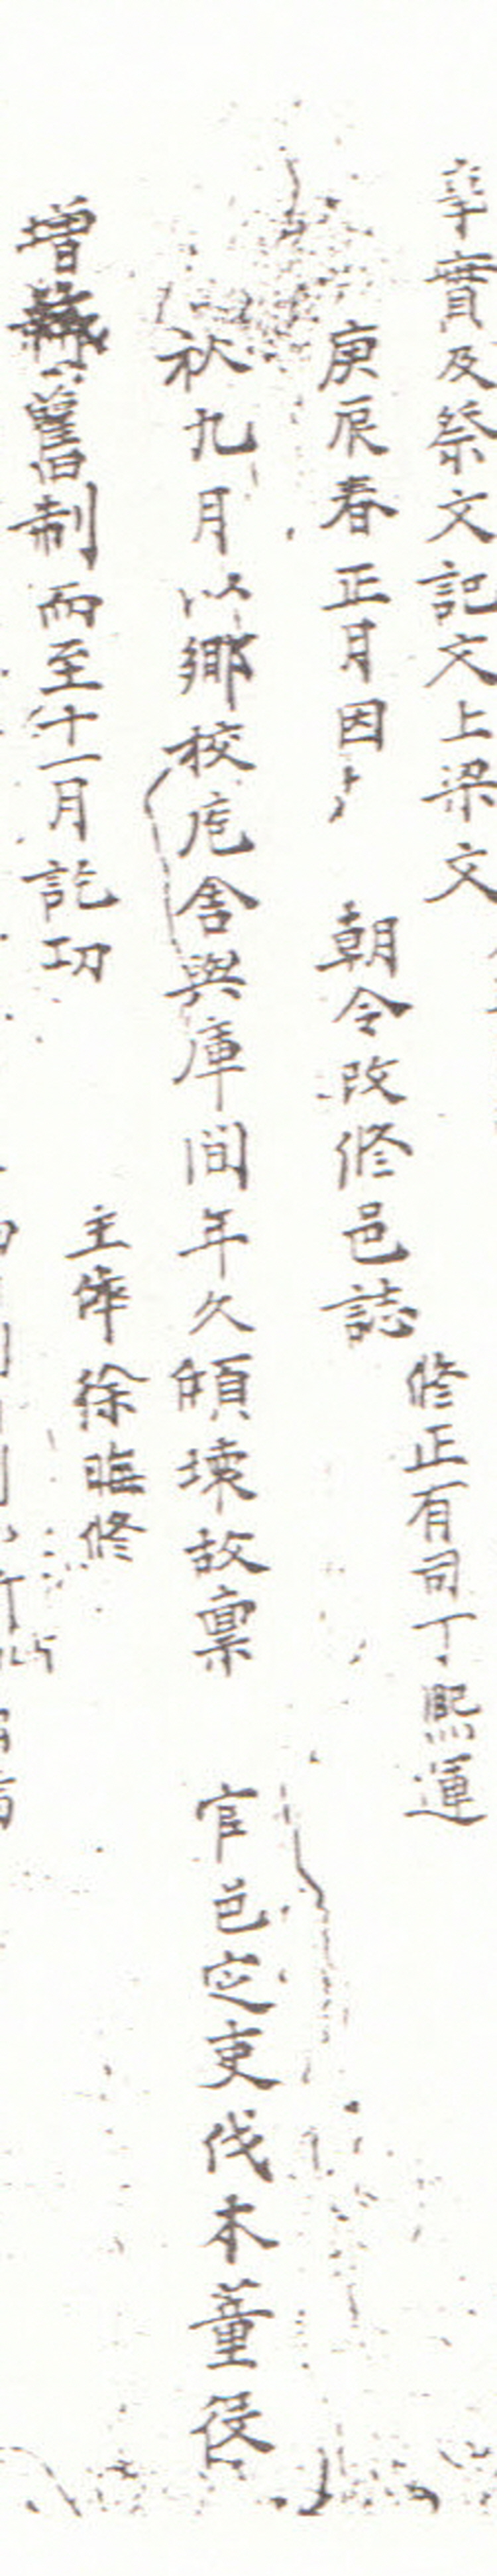 事實及祭文記文上梁文
修正有司丁熙運
庚辰春正月因 朝令改修邑誌
秋九月以鄉校庖舍與庫間年久頉壞故稟 官邑定吏伐木董役
增舊制而至十一月訖功
主倅徐臨修